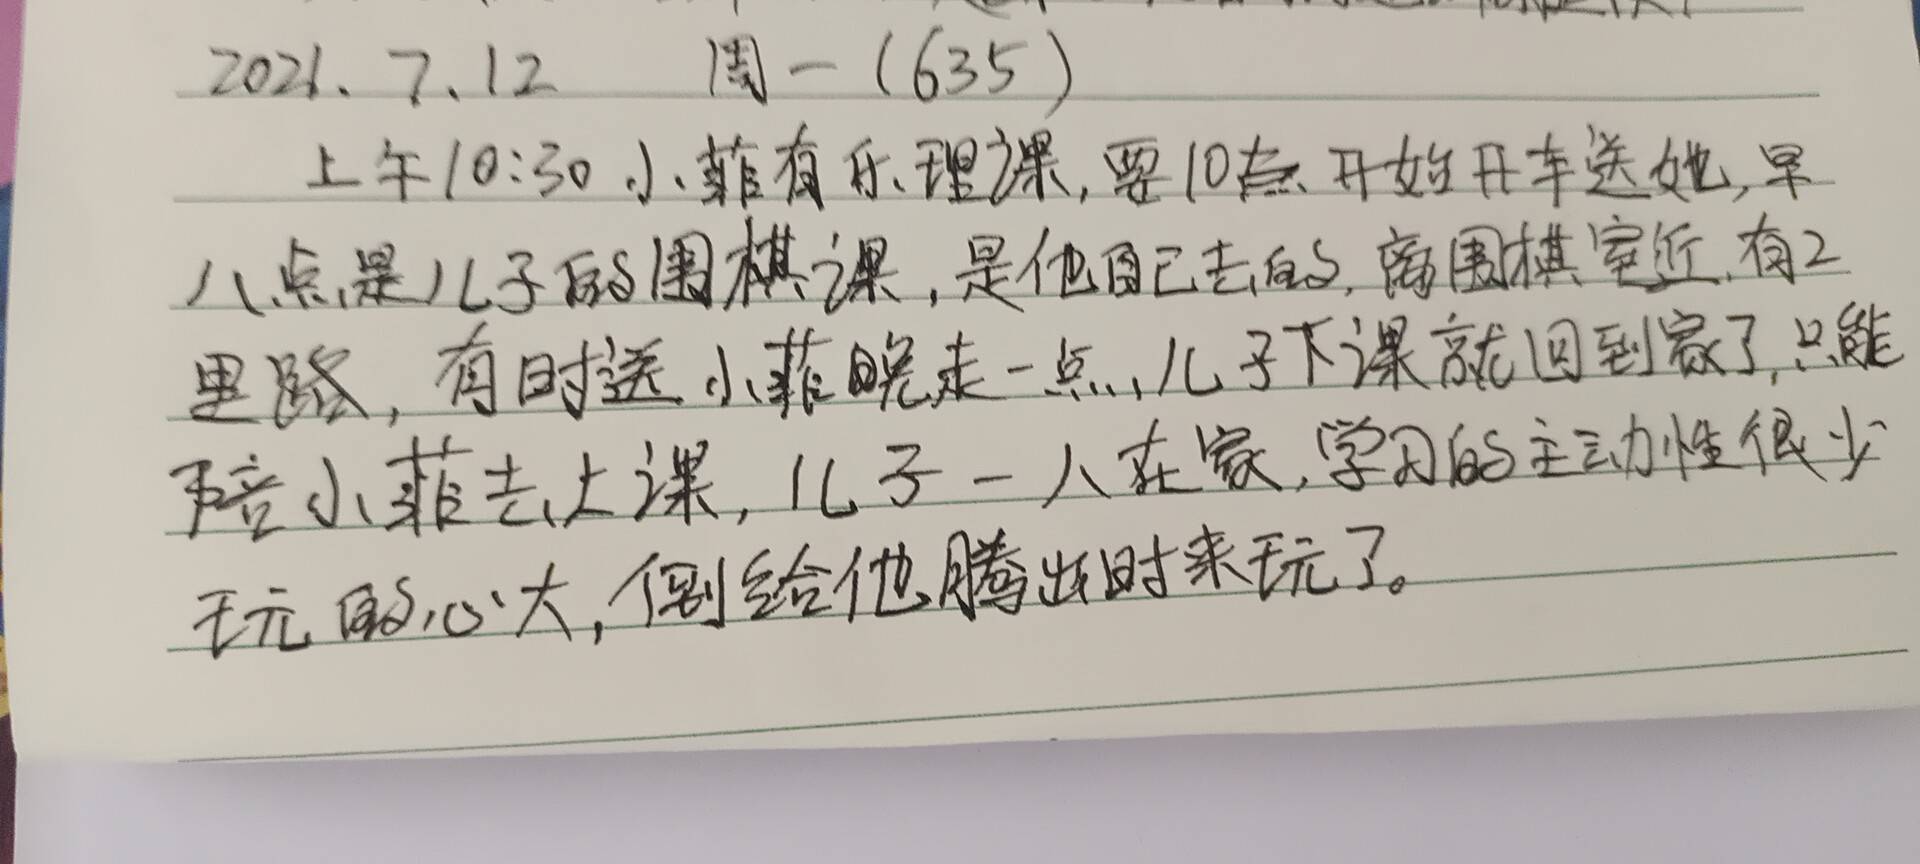 2021.7.12 周一(635)
上午10:30小菲有乐理课,要10点开始开车送她,早
八点是儿子的围棋课,是他自己去的,离围棋室近,有2
里路,有时送小菲晚走一点,儿子下课就回到家了,只能
陪小菲去上课,儿子一人在家,学习的主动性很少
玩的心大,倒给他腾出时来玩了。